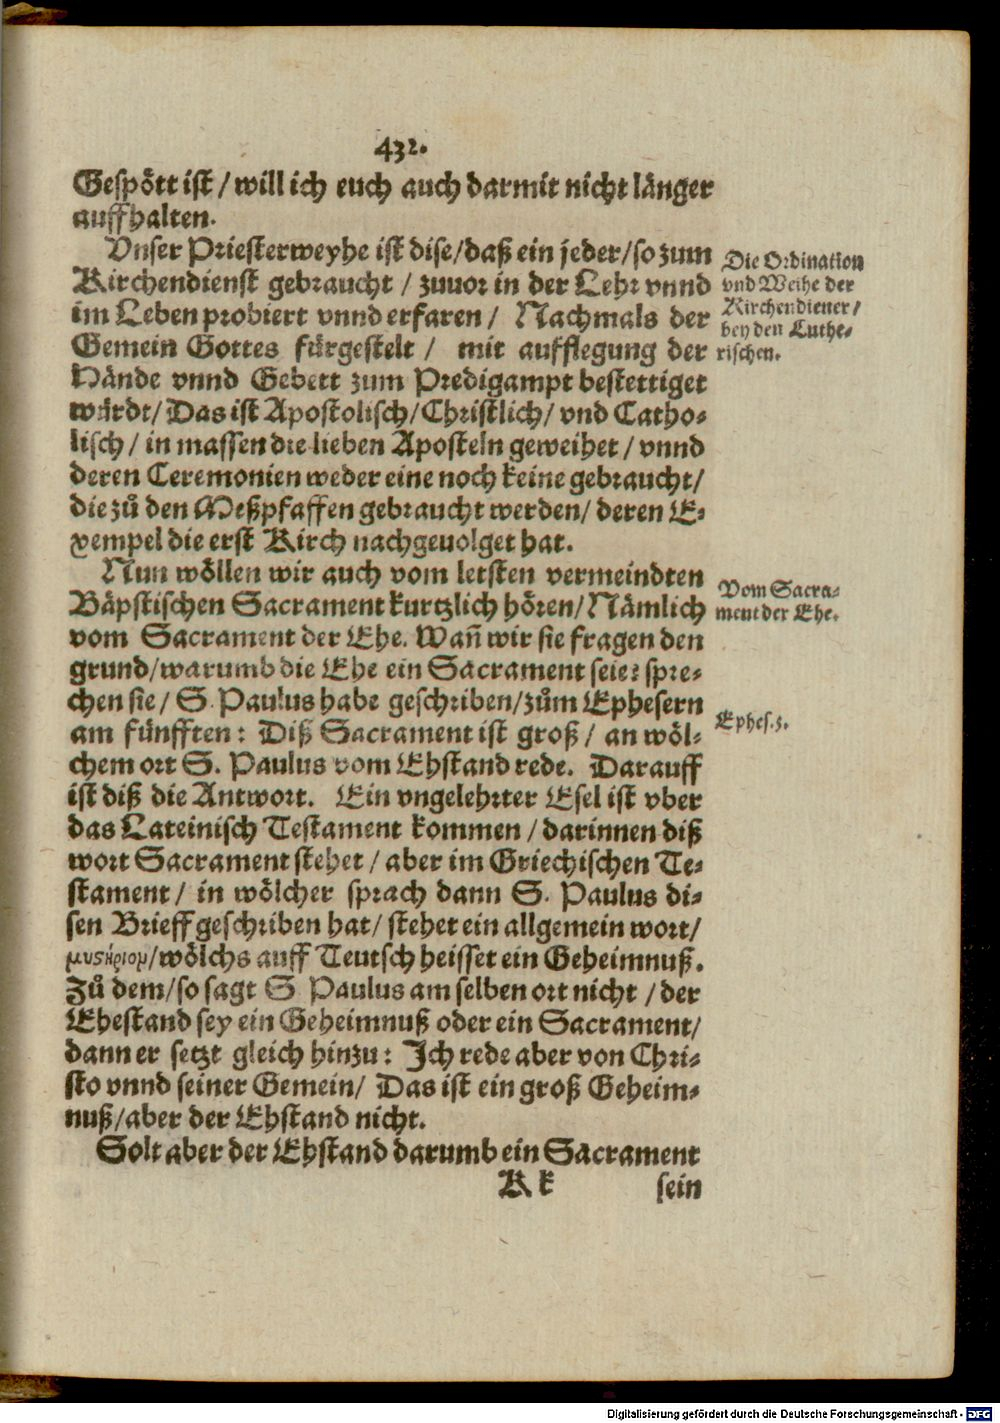 432.
Gespött ist / will ich euch auch darmit nicht länger
auffhalten.
Vnser Priesterweyhe ist dise / daß ein jeder / so zum
Kirchendienst gebraucht / zuuor in der Lehr vnnd
im Leben probiert vnnd erfaren / Nachmals der
Gemein Gottes fürgestelt / mit aufflegung der
Hände vnnd Gebett zum Predigampt bestettiget
würdt / Das ist Apostolisch / Christlich / vnd Catho-
lisch / in massen die lieben Aposteln geweihet / vnnd
deren Ceremonien weder eine noch keine gebraucht /
die zů den Meßpfaffen gebraucht werden / deren E-
xempel die erst Kirch nachgeuolget hat.
Die Ordination
vnd Weihe der
Kirchendiener /
bey den Luthe-
rischen.
Nun wöllen wir auch vom letsten vermeindten
Bäpstischen Sacrament kurtzlich hören / Nämlich
vom Sacrament der Ehe. Wañ wir sie fragen den
grund / warumb die Ehe ein Sacrament seie? spre-
chen sie / S. Paulus habe geschriben / zům Ephesern
am fünfften: Diß Sacrament ist groß / an wöl-
chem ort S. Paulus vom Ehstand rede. Darauff
ist diß die Antwort. Ein vngelehrter Esel ist vber
das Lateinisch Testament kommen / darinnen diß
wort Sacrament stehet / aber im Griechischen Te-
stament / in wölcher sprach dann S. Paulus di-
sen Brieff geschriben hat / stehet ein allgemein wort /
μυστήριον / wölchs auff Teutsch heisset ein Geheimnuß.
Zů dem / so sagt S. Paulus am selben ort nicht / der
Ehestand sey ein Geheimnuß oder ein Sacrament /
dann er setzt gleich hinzu: Ich rede aber von Chri-
sto vnnd seiner Gemein / Das ist ein groß Geheim-
nuß / aber der Ehstand nicht.
Vom Sacra-
ment der Ehe.
Ephes. 5.
Solt aber der Ehstand darumb ein Sacrament
K k sein
Digitalisierung gefördert durch die Deutsche Forschungsgemeinschaft - DFG